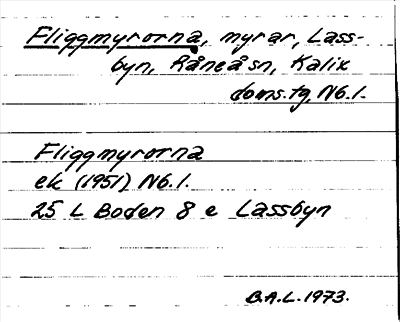 Fliggmyrorna, myrar, Lass-
byn, Råneå sn, Kalix
doms.tg, Nb.l.
Fliggmyrorna
ek (1951) Nb.l.
25 L Boden 8 e Lassbyn
B.A.L. 1973.